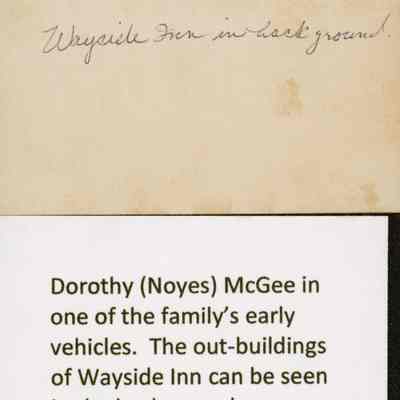 Wayside Inn in back ground.
Dorothy (Noyes) McGee in
one of the family's early
vehicles.  The out-buildings
of Wayside Inn can be seen